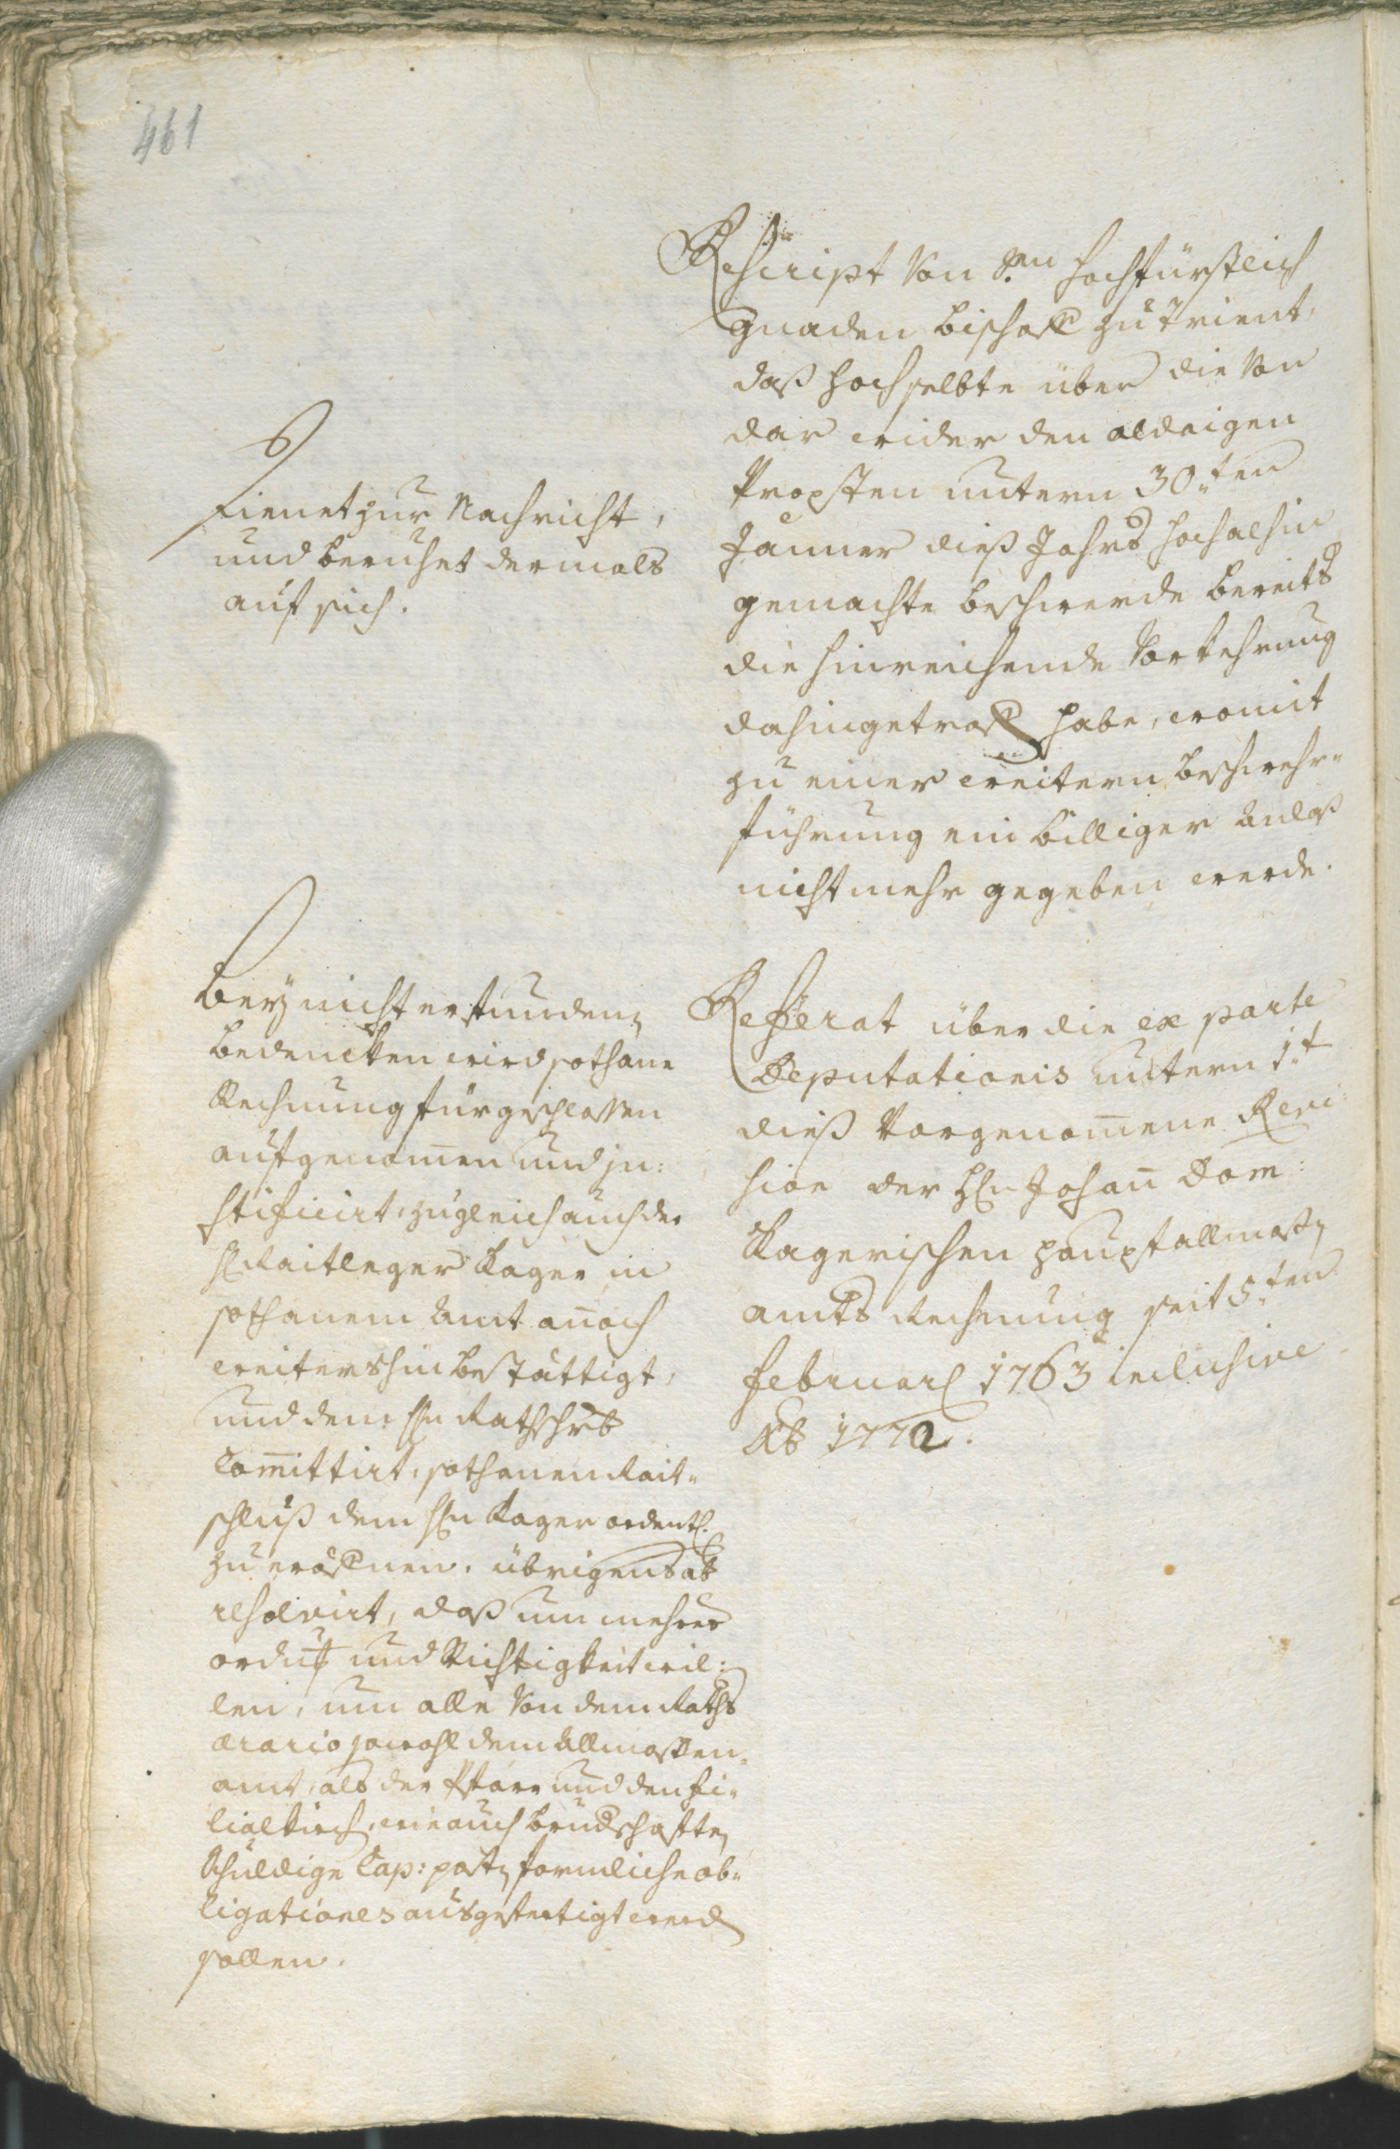 461
Rescript von Sr.en hochfürstlich
Gnaden bischoff zu Trient,
daß hochselbte über die von
dar wider den aldaigen
Propsten untern 30.ten
Janner dieß Jahrs hochalhin
gemachte beschwerde bereits
die hinreichende Vorkehrung
dahingetroff habe, womit
zu einer weitern beschwehr-
führung ein billiger anlaß
nicht mehr gegeben werde.
Dienet zur Nachricht,
und beruhet dermals
auf sich.
Referat über die ex parte
Deputationis untern 1.t
dieß vorgenom̄ene Revi-
sion der H Johan̄ Dom:
Kagerischen haupt allmoß
amts Rechnung seit 5.ten
Februar 1763 inclusive
1772.
Bey nicht erfundenen
bedencken wird sothane
Rechnung für geschlossen
aufgenom̄en und ju-
stificirt, zugleich auch der
H Raitleger Kager in
sothanem Amt an̄och
weitershin bestättigt,
und dem H Rathschrb
Com̄ittirt, sothanen Rait-
schluß dem H Kager ordentl.
zu eröffnen. übrigens ab
resolvirt, daß um mehrer
ordnu und Richtigkeit wil-
len, um alle von dem Raths
ærario sowohl dem Allmossen-
amt, als der Pfarr und den Fi-
lialkirch, wie auch brudschafften
schuldige Cap: post formliche ob-
ligationes ausgefertigt werd
sollen.